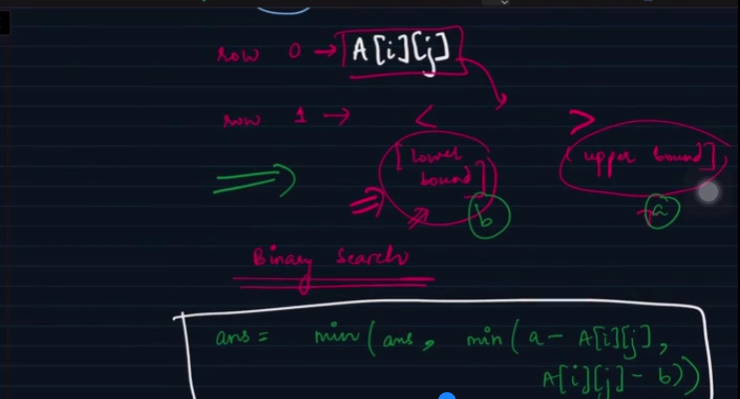 row 0 → A[i][j]
row 1 → < >
[lower bound] [upper bound],
b a
Binary Search
ans = min(ans, min(a - A[i][j],
A[i][j] - b))